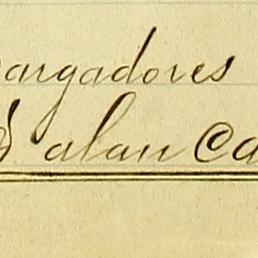 argadores
alan Ca